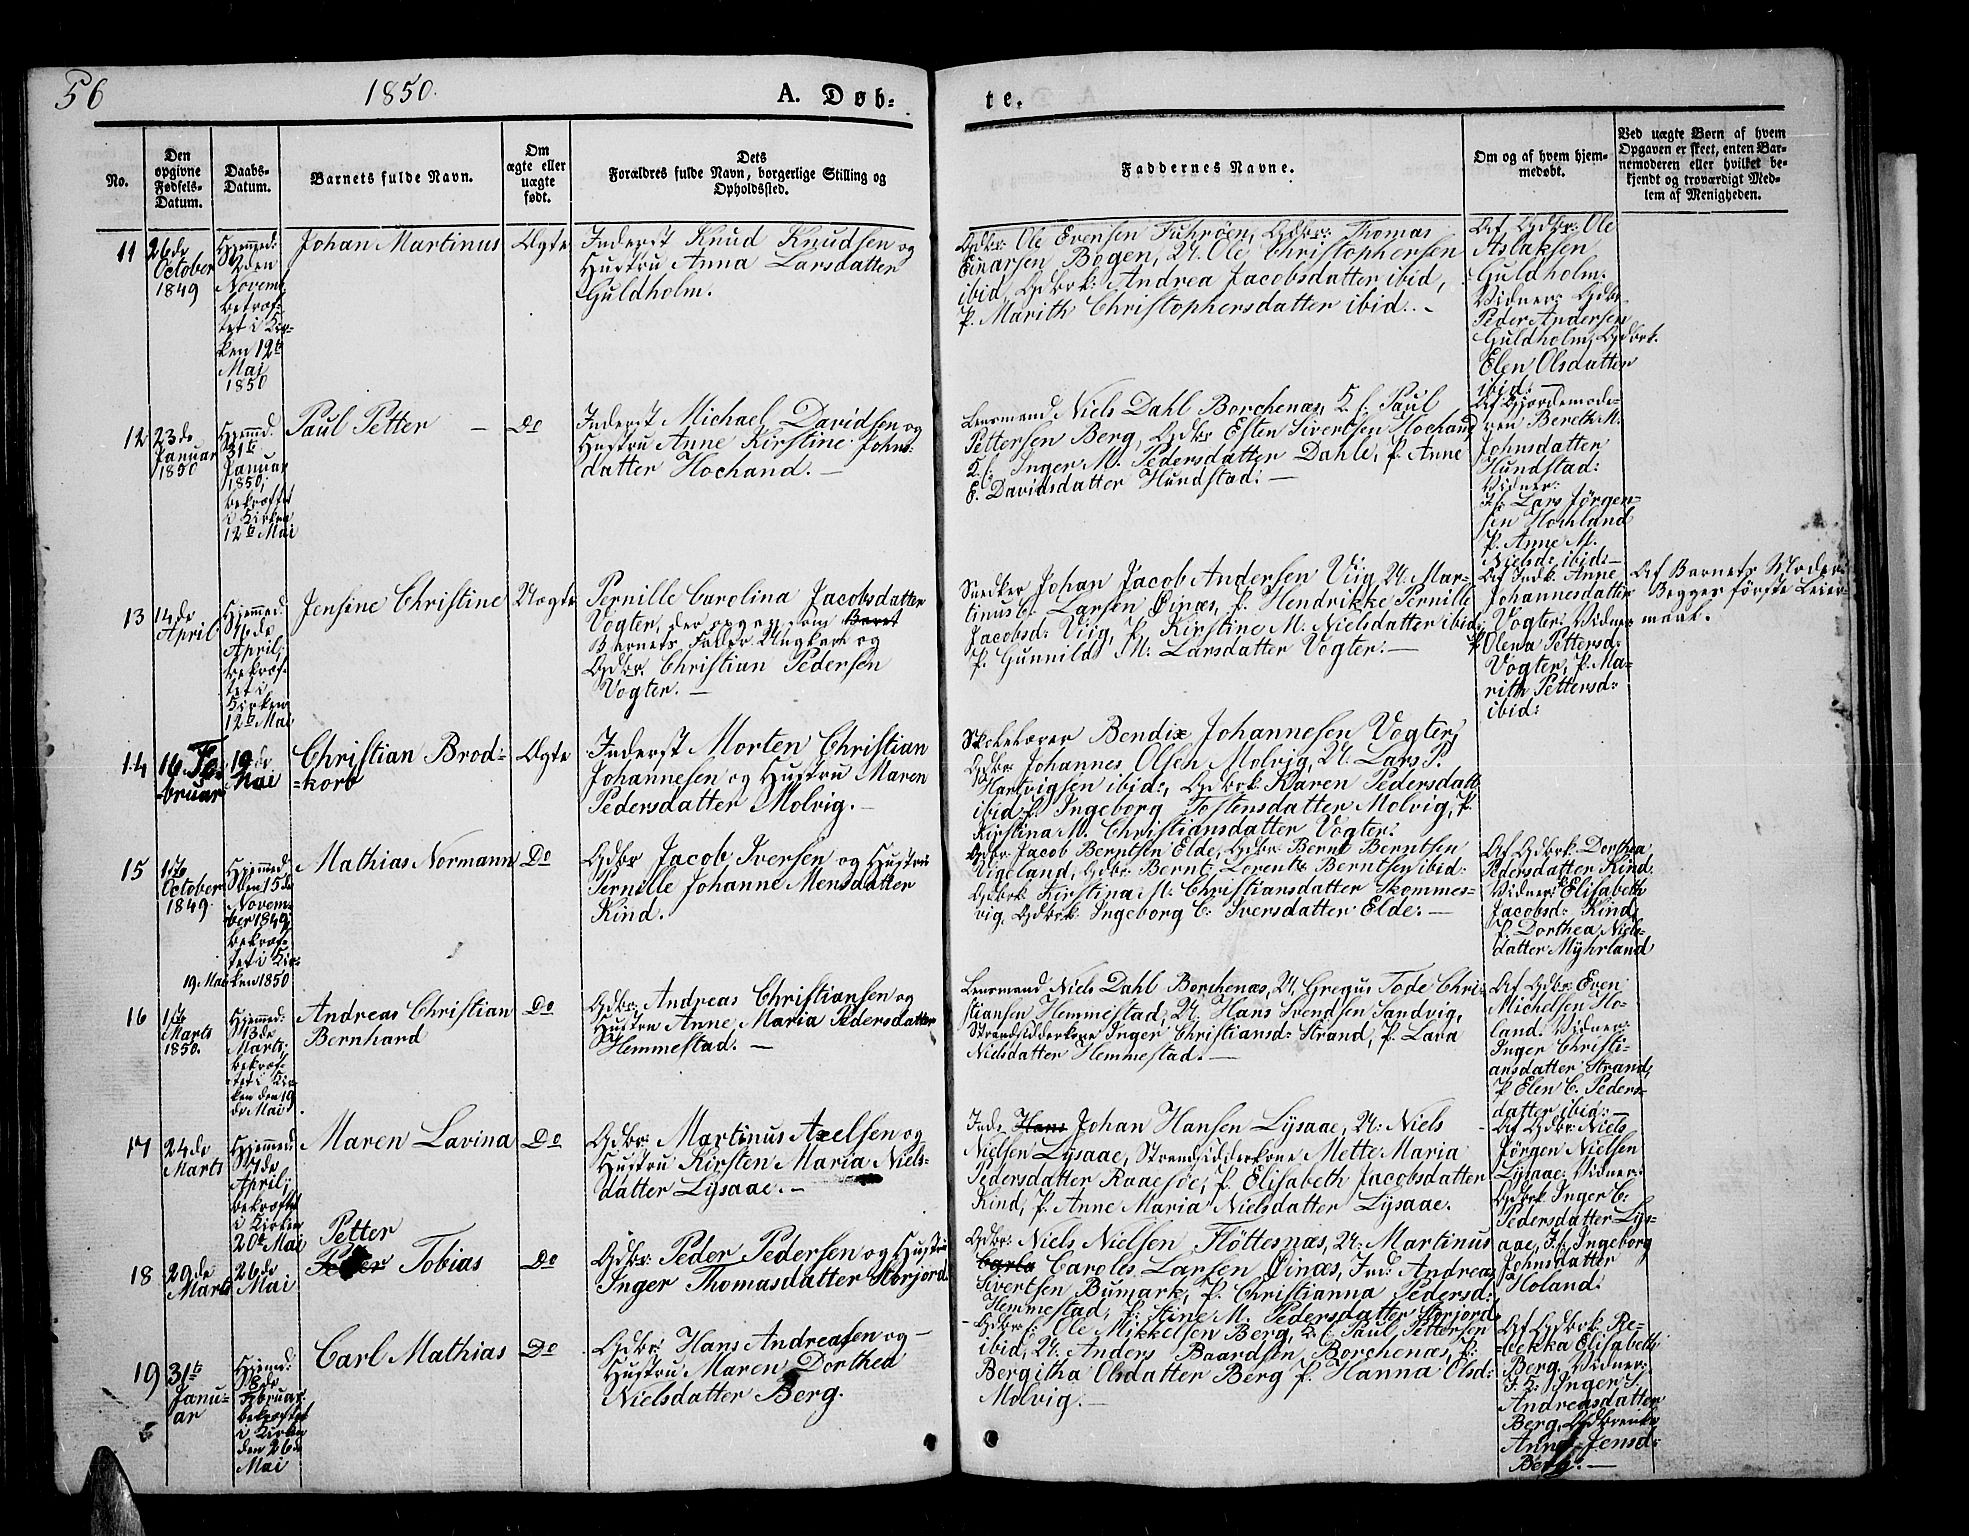 56
1850.
A. Døb-
te.
No.
Den
opgivne
Fødsels-
Datum.
Daabs-
Datum.
Barnets fulde Navn.
Om
ægte eller
uægte
født.
Dets
Forældres fulde Navn, borgerlige Stilling og
Opholdssted.
Faddernes Navne.
Om og af hvem hjem-
medøbt.
Ved uægte Børn af hvem
Opgaven er skeet, enten Bar-
nemoderen eller hvilket be-
kjendt og troværdigt Med-
lem af Menigheden.
11
26de
October
1849
Hjemmed:
den
Novem:
bekræf-
tet i Kir-
ken 12te
Mai
1850
Johan Martinus
Ægte
Inderst Knud Knudsen og
Hustru Anna Larsdatter
Guldholm.
Gdbr: Ole Evensen Fuhrøen, Gdbr: Thomas
Einarsen Bogen, U. Ole Christophersen
ibid, Gdbrk: Andrea Jacobsdatter ibid,
P. Marith Christophersdatter ibid.
Af Gdbr: Ole
Aslaksen
Guldholm.
Vidner: Gdbr
Peder Andersen
Guldholm, Gdbrk.
Elen Olsdatter
ibid.
12
23de
Januar
1850
Hjemmd.
31te
Januar
1850,
bekræftet
i Kirken
12te Mai
Paul Petter
Do
Inderst Michael Davidsen og
Hustru Anne Kirstine Johns-
datter Hochand.
Lensmand Niels Dahl Borchenæs, Paul
Pettersen Berg, Gdbr Esten Sivertsen Hochand
Inger M. Pedersdatter Dahle, P. Anne
E. Davidsdatter Hundstad.
Af Gjordemode-
ren Bereth M.
Johnsdatter
Hundstad:
Vidner:
Lars Jørgen-
sen Hochland
P. Anne M.
Nielsd: ibid:
13
14de
April
Hjemmed
16de
April;
bekræf-
tet i
Kirken
12te Mai
Jensine Christine
Uægte
Pernille Carolina Jacobsdatter
Vogter, der opgav som Baret
Barnets Fader Ungkarl og
Gdbr. Christian Pedersen
Vogter.
Snedker Johan Jacob Andersen Viig, U. Mar-
tinus C. Larsen Øinæs, P. Hendrikke Pernille
Jacobsd: Viig, P. Kirstine M: Nielsdatter ibid,
P. Gunnild M: Larsdatter Vogter.
Af Indk. Anne
Johannesdatter
Vogter: Vidner
P. Olena Pettersd:
Vogter, P. Ma-
rith Pettersd:
ibid:
Af Barnets Moder.
Begges første Leier-
maal.
14
16 Fe-
bruar
19de
Mai
Christian Brod-
korb
Ægte
Inderst Morten Christian
Johannesen og Hustru Maren
Pedersdatter Molvig.
Bendix Johannesen Vogter,
Gdbr: Johannes Olsen Molvig, U. Lars P.
Hartvigsen ibid:, Gdbrk Karen Pedersdatt
ibid: P. Ingeborg Tostensdatter Molvig, P.
Kirstina M. Christiansdatter Vogter.
15
October
1849
Hjemmed:
den 15de
Novem-
ber 1849,
bekræf-
tet i Kir-
19. Mai
ken 1850
Mathias Normann
Do
Gdbr Jacob Iversen og Hustru
Pernille Johanne Mensdatter
Kind.
Gdbr: Jacob Berntsen Elde, Gdbr: Bernt Berntsen
Vigeland, Gdbr: Bernt Lorents Berntsen ibid:
Gdbrk Kirstina M: Christiansdatter Skommes-
vig, Gdbrk: Ingeborg C: Iversdatter Elde.
Af Gdbrk Dorthea
Pedersdatter Kind.
Vidner: Elisabeth
Jacobsd: Kind,
P. Dorthea Niels-
datter Myhrland
16
Marts
1850.
Hjemmed:
13de
Marts;
bekræf-
tet i Kir-
ken den 19
de Mai
Andreas Christian
Bernhard
Do
Gdbr: Andreas Christiansen og
Hustru Anne Maria Pedersdatter
Hemmestad.
Lensmand Niels Dahl Borchenæs, U. Gregus Tode Chri-
stiansen Hemmestad, U. Hans Svendsen Sandvig,
Strandsidderkone Inger Christiansd: Strand, P. Lava
Nielsdatter Hemmestad.
Af Gdbr: Even
Michelsen Ho-
land. Vidner:
Inger Christi-
ansdatter Strand,
P. Elen C. Peders-
datter ibid:
17
24de
Marts
Hjemmed:
7de
April;
bekræftet
i Kirken
20de Mai
Maren Lavina
Do
Gdbr: Martinus Axelsen og
Hustru Kirsten Maria Niels-
datter Lysaae.
Ind. Hans Johan Hansen Lysaae, U: Niels
Nielsen Lysaae, Strandsidderkone Mette Maria
Pedersdatter Raaesde, P. Elisabeth Jacobsdatter
Kind, P. Anne Maria Nielsdatter Lysaae.
Af Gdbr: Niels
Jørgen Nielsen
Lysaae: Vidner:
Gdbrk Inger C:
Pedersdatter Lys-
aae, Ingeborg
Johnsdatter
Holand.
18
29de
Marts
26de
Mai
Petter
Peder Tobias
Do
Gdbr: Peder Pedersen og Hustru
Inger Thomasdatter Storjord
Gdbr: Niels Nielsen Flöttesnæs, U: Martinus
Carla Caroles Larsen Øinæs, Ind: Andreas
Sivertsen Bumark, P. Christianna Pedersd:
Hemmestad, P: Stine M. Pedersdatter Storjord
19
31te
Janu-
ar
Hjemd:
8de
Februar
bekræftet
i Kirken
den 26de
Mai
Carl Mathias
Do
Gdbr: Hans Andreasen og
Hustru Maren Dorthea
Nielsdatter Berg.
Gdbr: Ole Mikkelsen Berg, Paul Pettersen
ibid, U. Anders Baardsen Borchenæs, P:
Bergitha Olsdatter Berg P. Hanna Olsd:
Molvig.
Af Gdbrk Re-
bekka Elisabeth
Berg. Vidner:
Inger S.
Andreasdatter
Berg, Gdbrenke
Anne Jensd:
Berg.